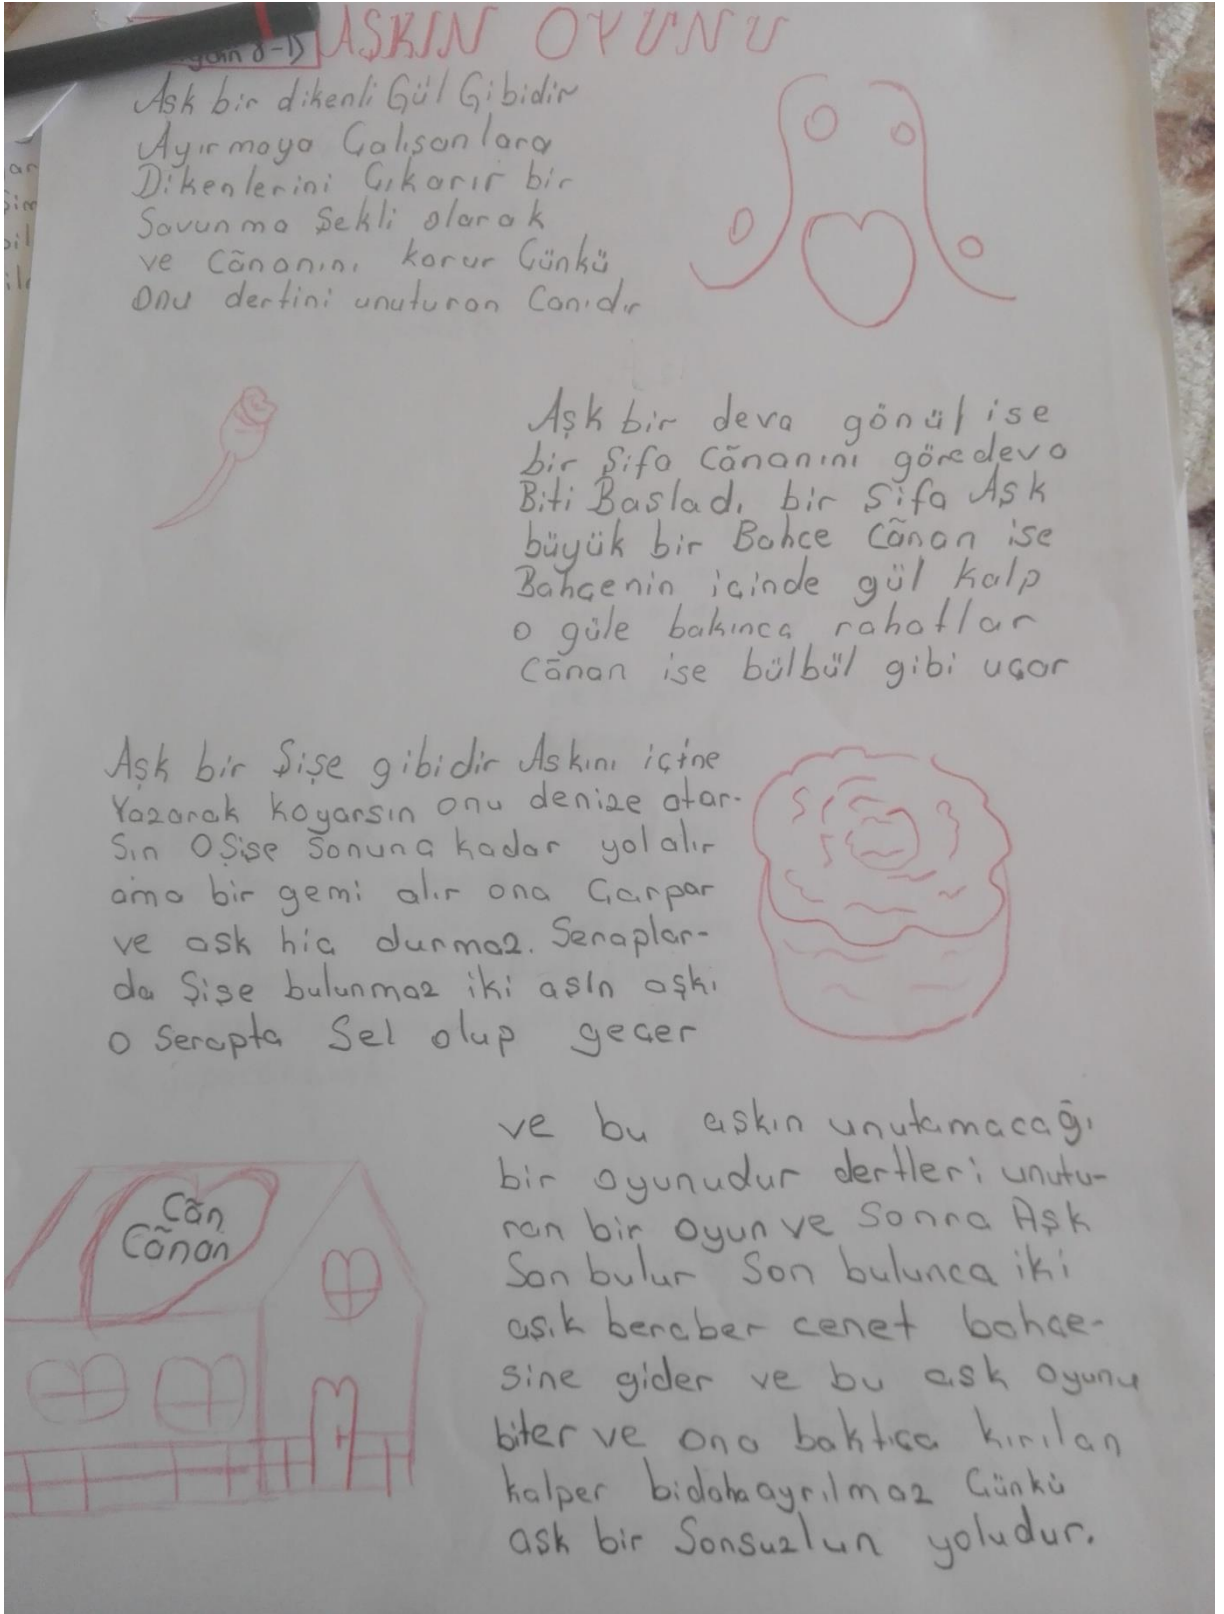 AŞKIN OYUNU
8-D
Aşk bir dikenli Gül Gibidir
Ayırmaya Çalışanlara
Dikenlerini Çıkarır bir
Savunma Şekli olarak
ve Cãnanını korur Çünkü
Onu dertini unuturan Canıdır
Aşk bir deva gönül ise
bir Şifa Cãnanını göre deva
Biti Başladı bir Şifa Aşk
büyük bir Bahçe Cãnan ise
Bahçenin içinde gül kalp
o güle bakınca rahatlar
Cãnan ise bülbül gibi uçar
Aşk bir Şişe gibidir Askını içine
Yazarak koyarsın onu denize atar-
Sın O Şişe Sonuna kadar yol alır
ama bir gemi alır ona Çarpar
ve ask hiç durmaz. Seraplar-
da Şişe bulunmaz iki asın aşkı
o Serapta Sel olup geçer
ve bu askın unutamacağı
bir oyunudur dertleri unutu-
ran bir oyun ve Sonra Aşk
Son bulur Son bulunca iki
aşık beraber cenet bahçe-
sine gider ve bu ask oyunu
biter ve ona baktıça kırılan
kalper bidaha ayrılmaz Çünkü
ask bir Sonsuzlun yoludur.
Cãn
Cãnan